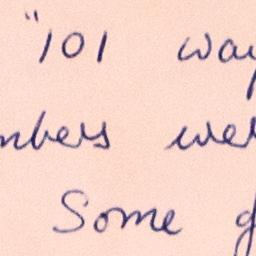 "101 way
mbers wer
Some g